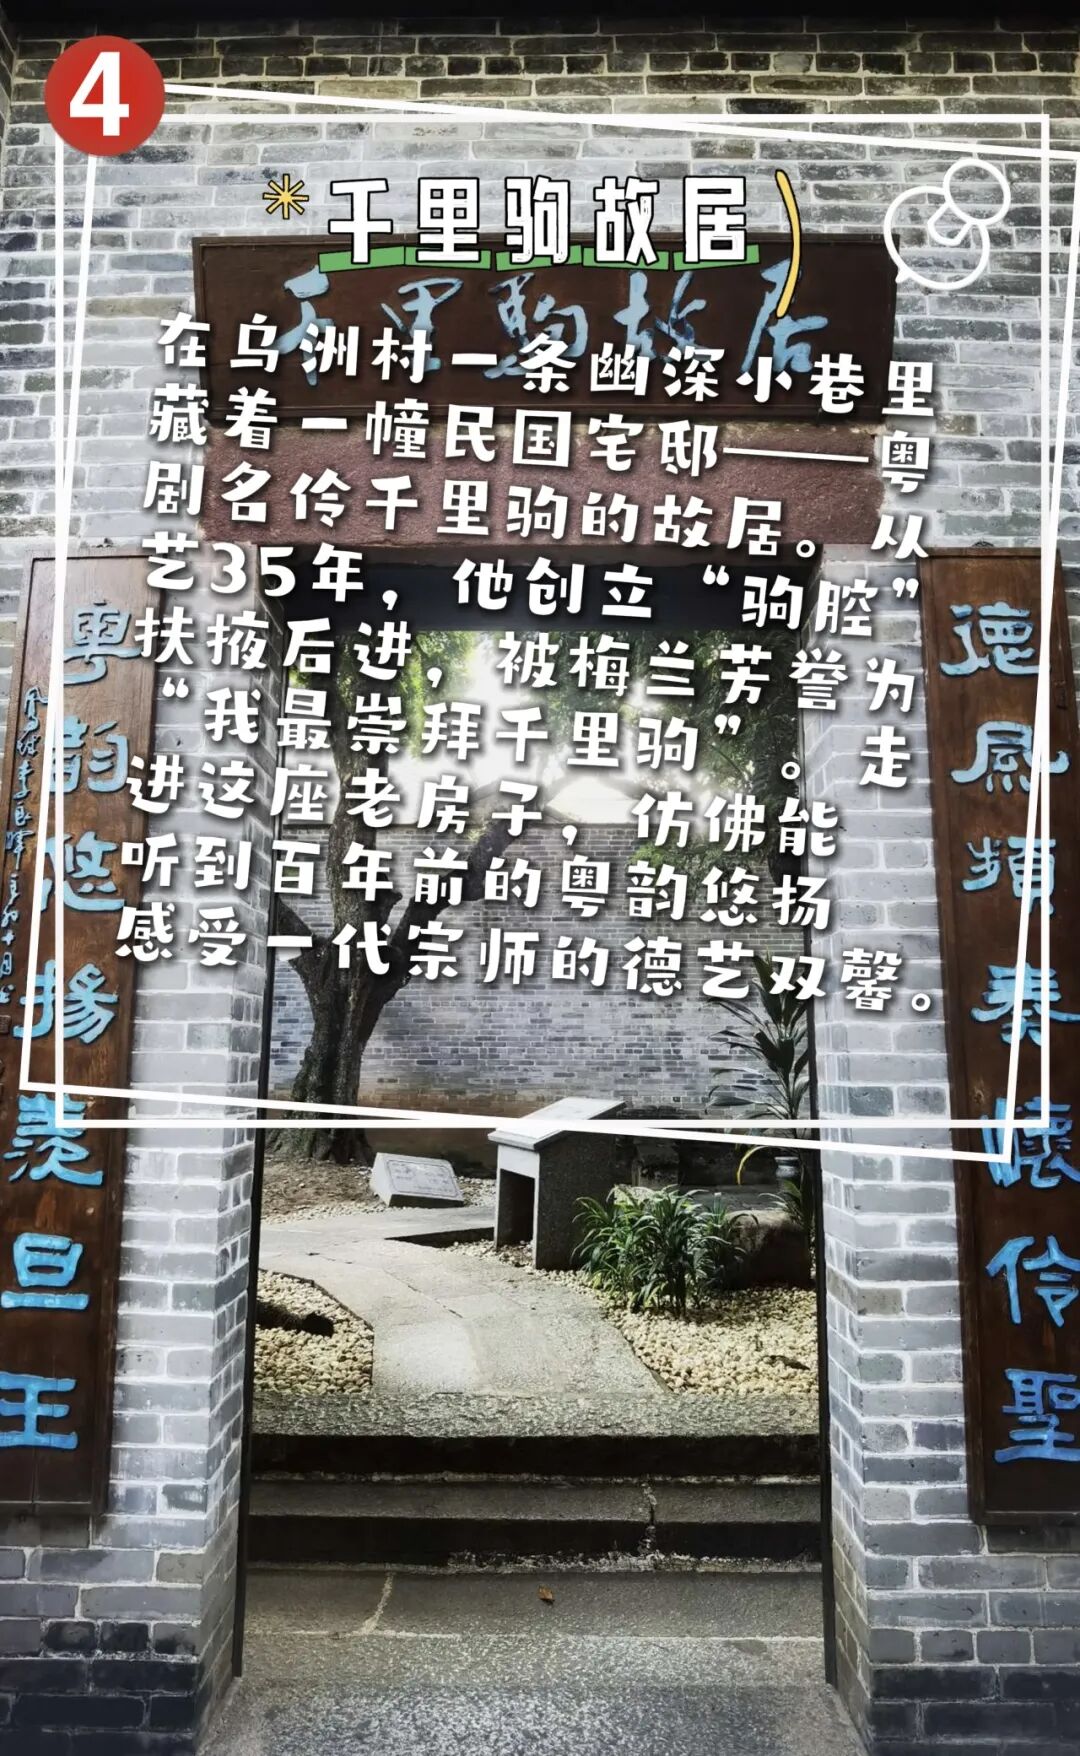 4
千里驹故居
千里駒故居
在乌洲村一条幽深小巷里
藏着一幢民国宅邸——粤
剧名伶千里驹的故居。从
艺35年，他创立“驹腔”
扶掖后进，被梅兰芳誉为
“我最崇拜千里驹”。走
进这座老房子，仿佛能
听到百年前的粤韵悠扬
感受一代宗师的德艺双馨。
德風頻奏懷伶聖
粵韵悠揚羨旦王